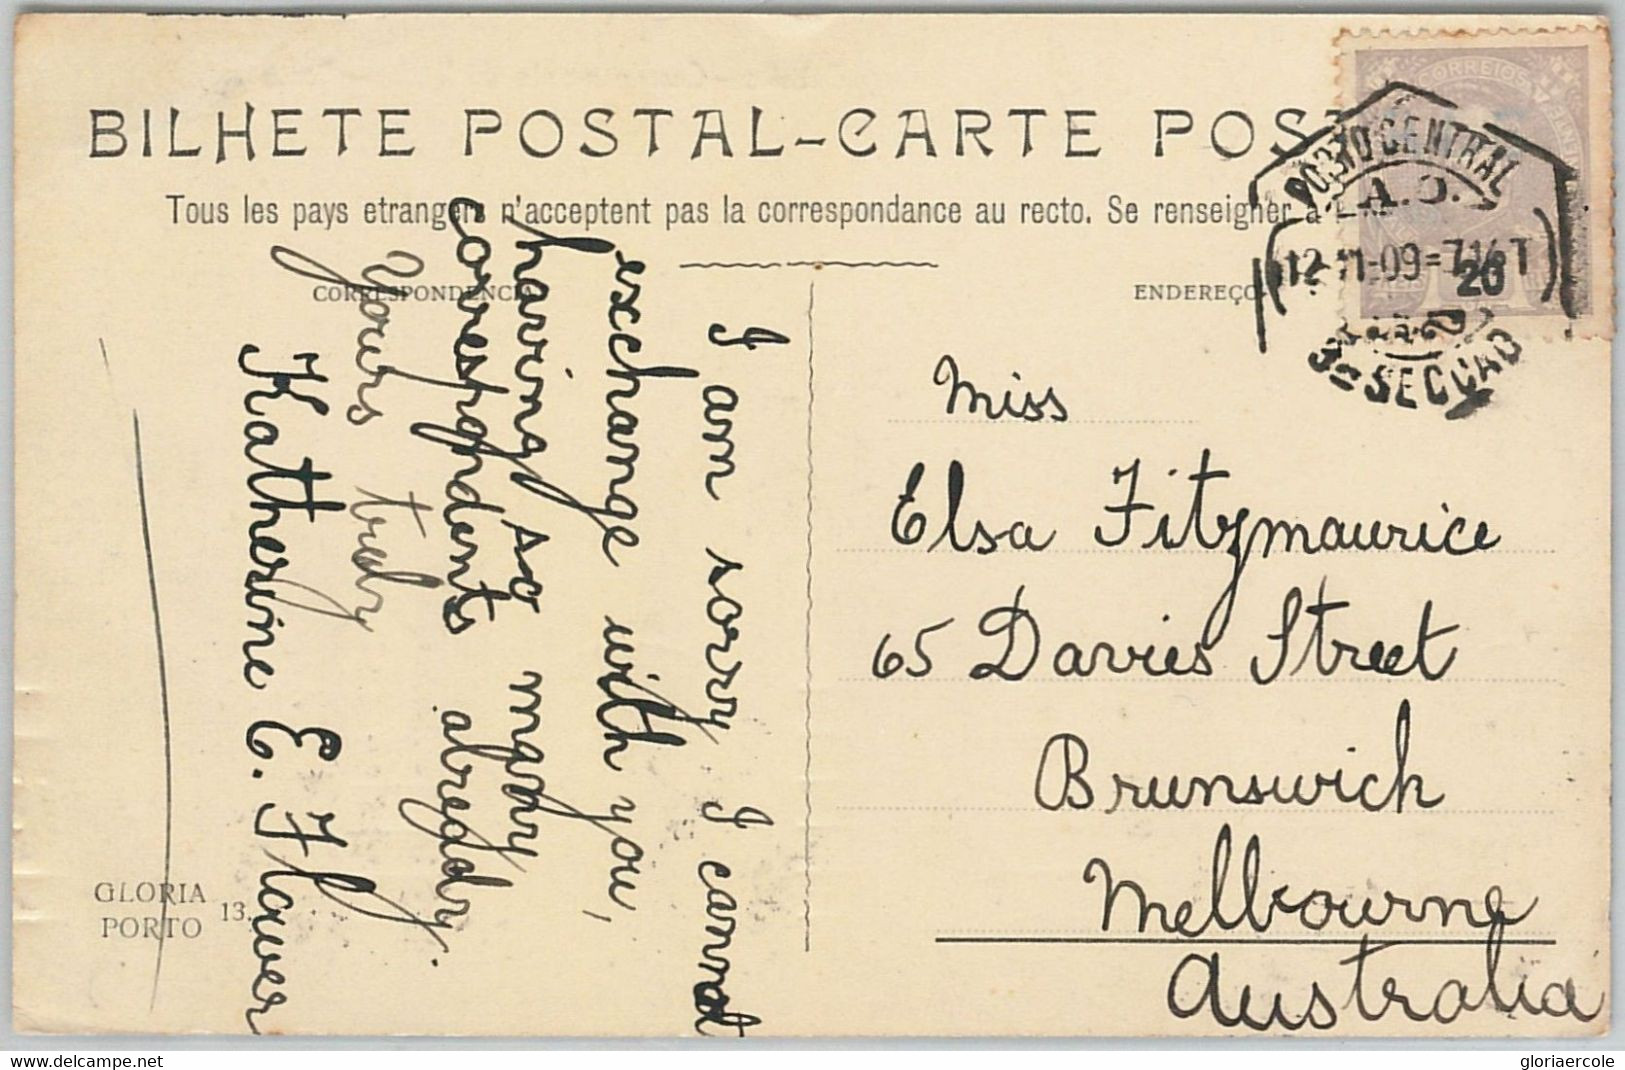 BILHETE POSTAL-CARTE POST
Tous les pays etrangers n'acceptent pas la correspondance au recto. Se renseigner à
CORRESPONDENCIA
ENDEREÇO
CORREIOS
PORTO CENTRAL
20
3ª SECÇÃO
I am sorry I cannot
exchange with you,
having so many
correspondents already.
Yours truly
Katherine E. Flower
Miss
Elsa Fitzmaurice
65 Davies Street
Brunswich
Melbourne
Australia
GLORIA
PORTO
13.
www.delcampe.net
gloriaercole